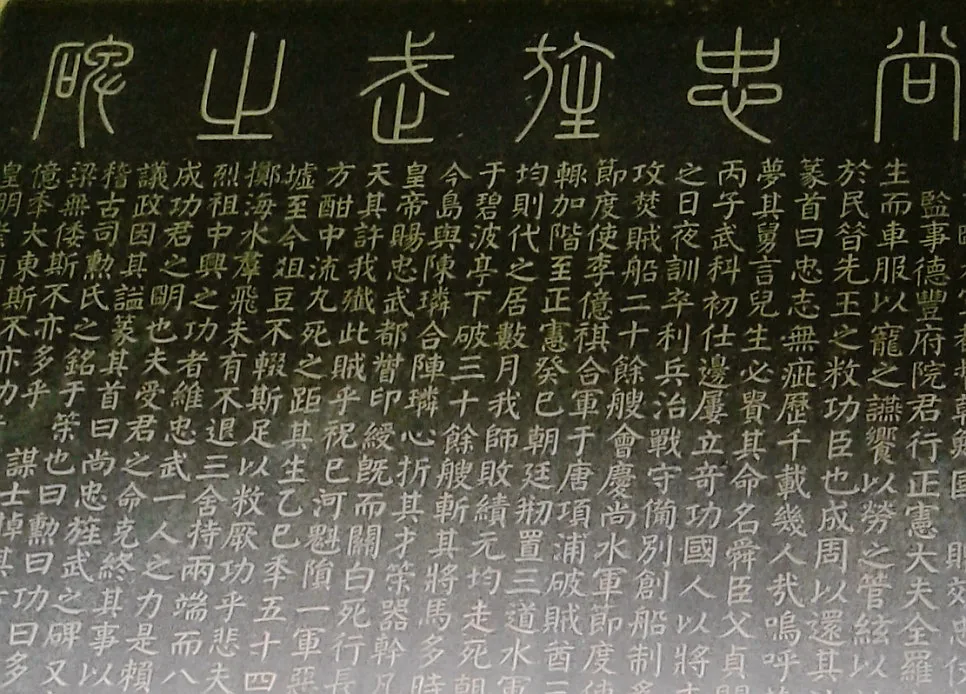 尚忠旌武之碑
監事德豐府院君行正憲大夫全羅
生而車服以寵之讌饗以勞之管絃以
於民晉先王之敉功臣也成周以還其
篆首曰忠志無疵歷千載幾人哉嗚呼
夢其舅言兒生必貴其命名舜臣父貞
丙子武科初仕邊屢立奇功國人以將
之日夜訓卒利兵治戰守備別創船制
攻焚賊船二十餘艘會慶尚水軍節度
節度使李億祺合軍于唐項浦破賊酋二
輒加階至正憲癸巳朝廷刱置三道水軍
均則代之居數月我師敗績元均走死朝
于碧波亭下破三十餘艘斬其將馬多時
今島與陳璘合陣璘心折其才策器幹凡
皇帝賜忠武都督印綬既而關白死行長
天其許我殲此賊乎祝已河魁隕一軍惡
方酣中流九死之距其生乙巳年五十四
墟至今俎豆不輟斯足以敉厥功乎悲夫
擲海水羣飛未有不退三舍持兩端而八
烈祖中興之功者維忠武一人之力是賴
成功君之明也夫受君之命克終其事以
議政因其謚篆其首曰尚忠旌武之碑又
稽古司勳氏之銘于策也曰勳曰功曰多
梁無倭斯不亦多乎
億年大東斯不亦功